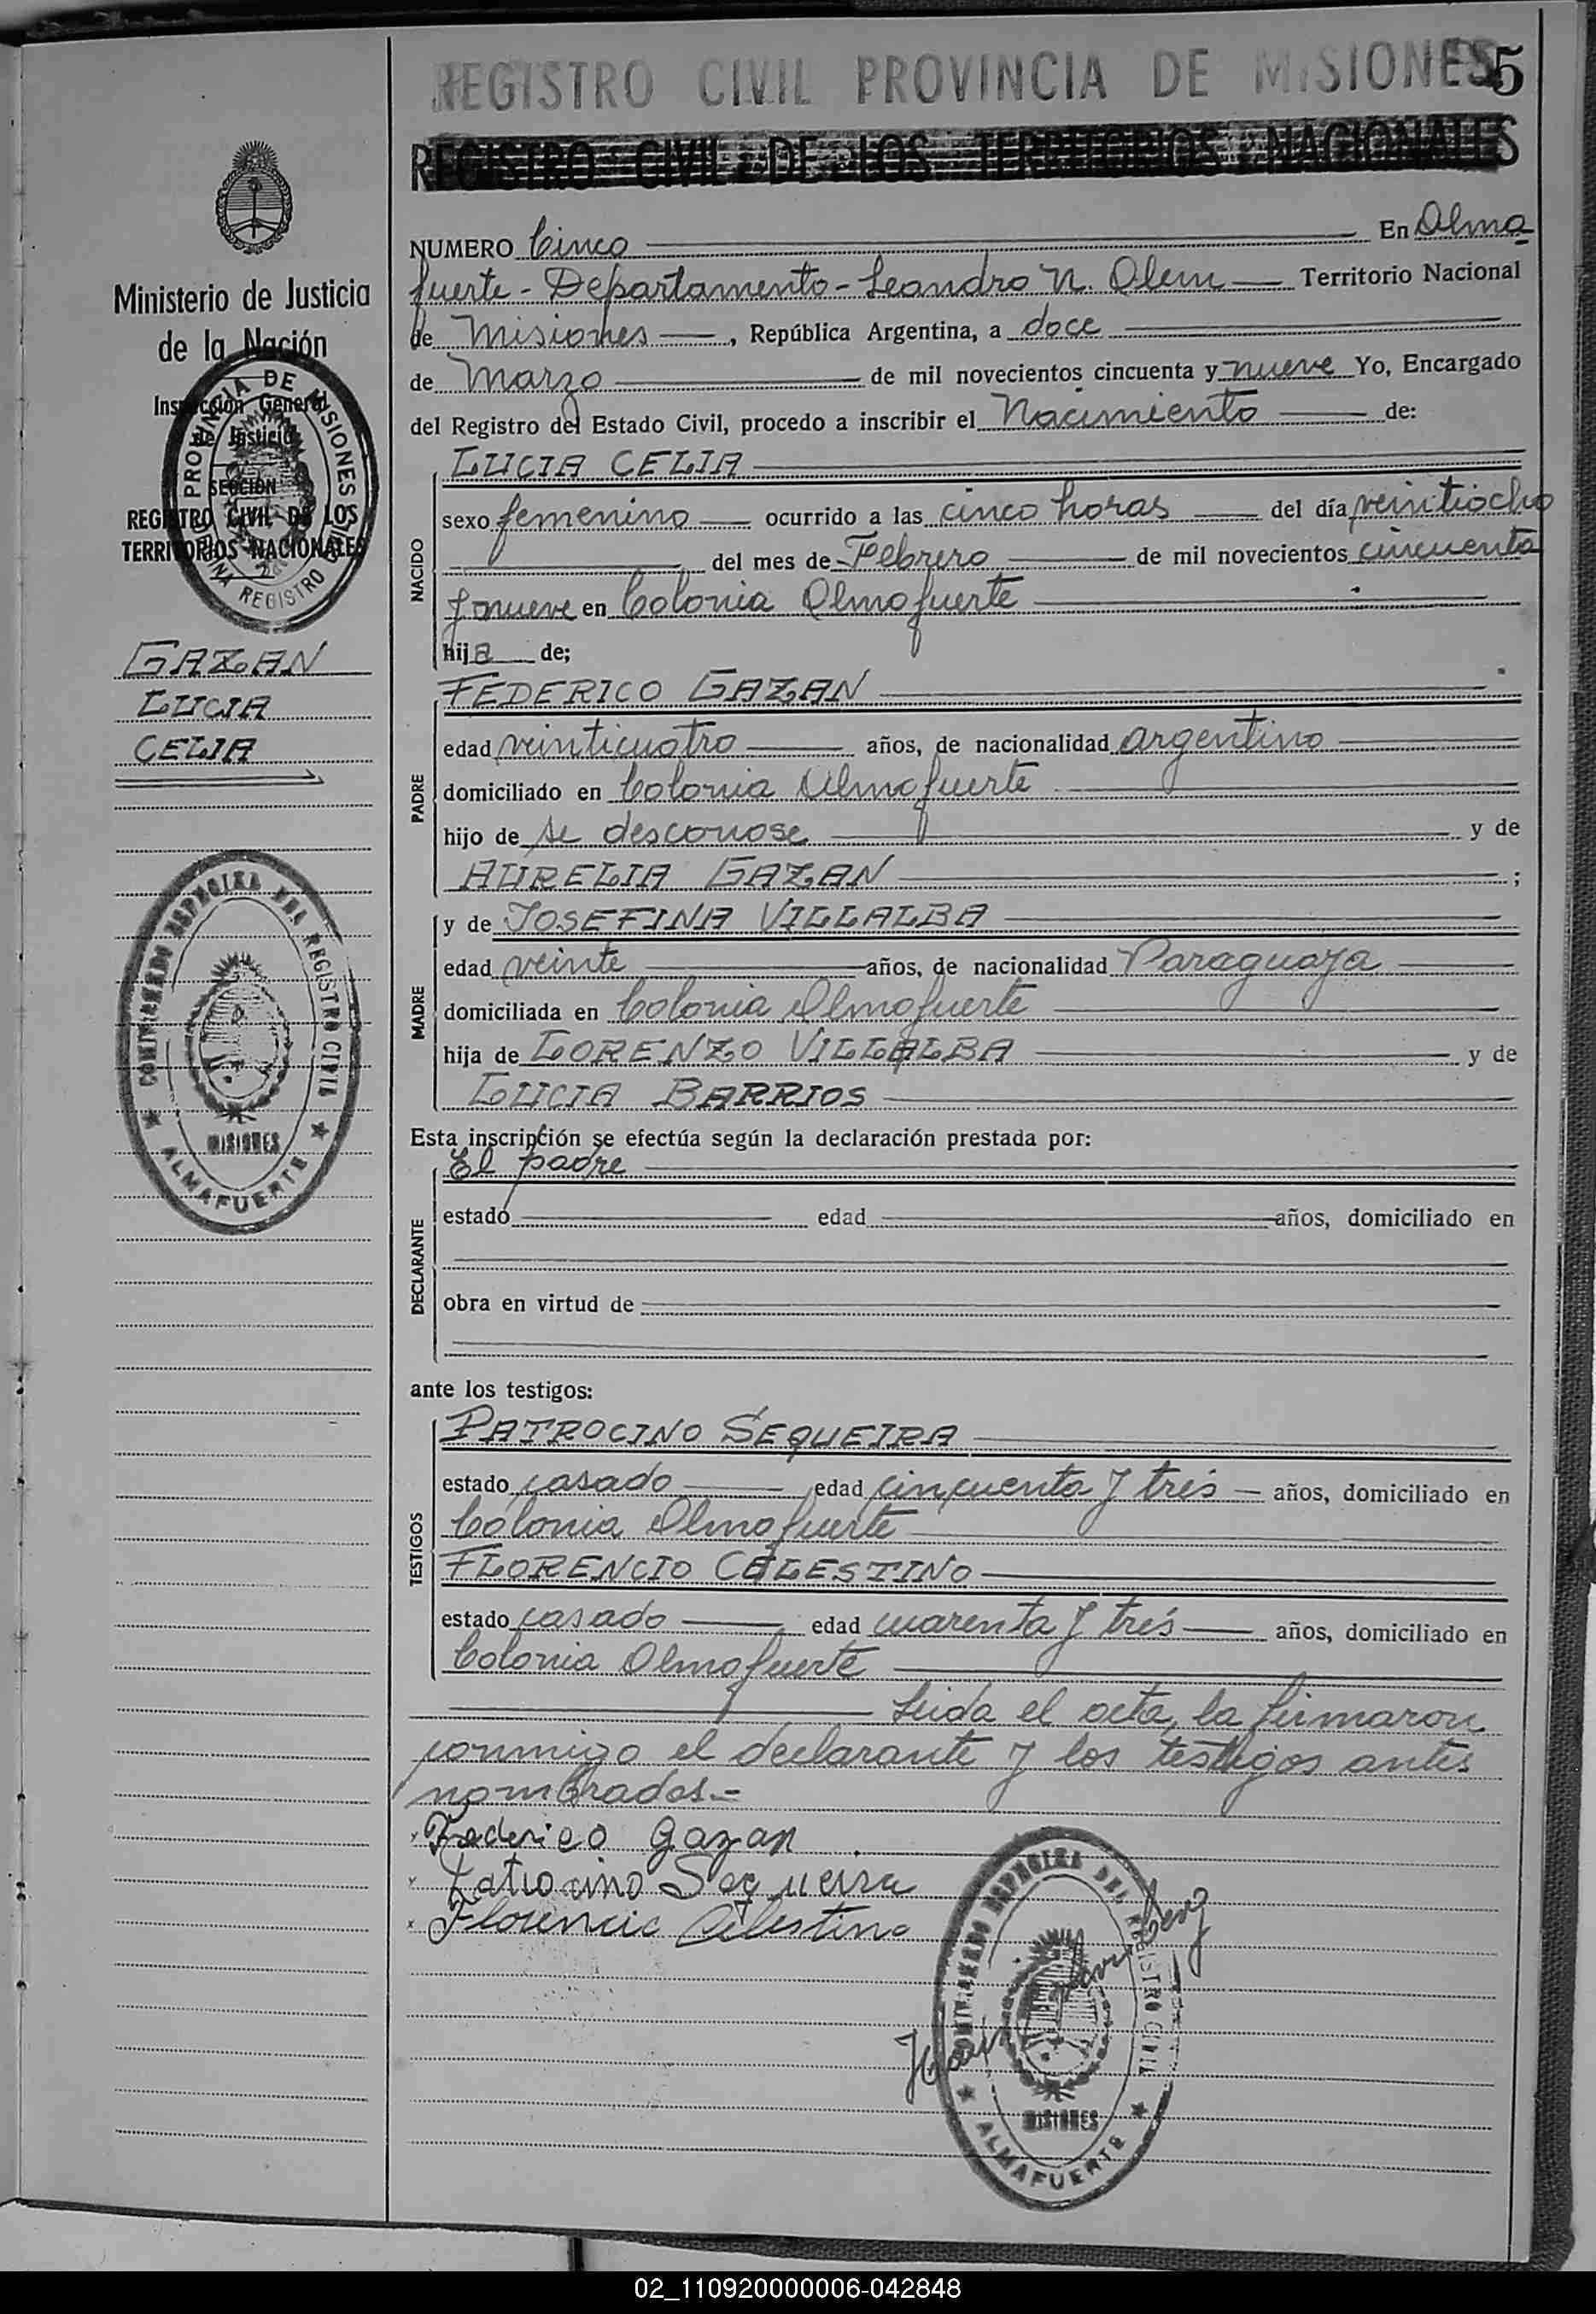 REGISTRO CIVIL PROVINCIA DE MISIONES
5
REGISTRO CIVIL DE LOS TERRITORIOS NACIONALES
Ministerio de Justicia
de la Nación
Inspección General
de Justicia
SECCIÓN
REGISTRO CIVIL DE LOS
TERRITORIOS NACIONALES
PROVINCIA DE MISIONES
REGISTRO
GAZAN
LUCIA
CELIA
REGISTRO CIVIL
MISIONES
ALMAFUERTE
NUMERO Cinco En Alma
fuerte - Departamento - Leandro N. Alem Territorio Nacional
de Misiones , República Argentina, a doce
de Marzo de mil novecientos cincuenta y nueve Yo, Encargado
del Registro del Estado Civil, procedo a inscribir el Nacimiento de:
NACIDO
LUCIA CELIA
sexo femenino ocurrido a las cinco horas del día veintiocho
del mes de Febrero de mil novecientos cincuenta
y nueve en Colonia Almafuerte
hija de;
PADRE
FEDERICO GAZAN
edad veinticuatro años, de nacionalidad argentino
domiciliado en Colonia Almafuerte
hijo de se desconose y de
AURELIA GAZAN ;
MADRE
y de JOSEFINA VILLALBA
edad veinte años, de nacionalidad Paraguaya
domiciliada en Colonia Almafuerte
hija de LORENZO VILLALBA y de
LUCIA BARRIOS
Esta inscripción se efectúa según la declaración prestada por:
DECLARANTE
El padre
estado edad años, domiciliado en
obra en virtud de
ante los testigos:
TESTIGOS
PATROCINO SEQUEIRA
estado casado edad cincuenta y trés años, domiciliado en
Colonia Almafuerte
FLORENCIO CELESTINO
estado casado edad cuarenta y trés años, domiciliado en
Colonia Almafuerte
Leida el acta, la firmaron
conmigo el declarante y los testigos antes
nombrados.=
Federico gazan
Patrocino Sequeira
Florencio Celestino
REGISTRO CIVIL
MISIONES
ALMAFUERTE
02_110920000006-042848